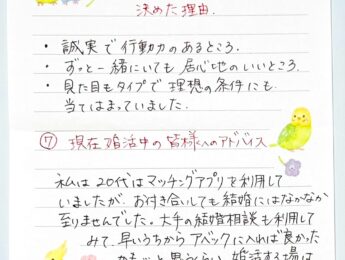 決めた理由.
・ 誠実で行動力のあるところ.
・ ずっと一緒にいても居心地のいいところ.
・ 見た目もタイプで理想の条件にも
当てはまっていました.
⑦ 現在婚活中の皆様へのアドバイス
私は20代はマッチングアプリを利用して
いましたが、お付き合いしても結婚にはなかなか
至りませんでした。大手の結婚相談も利用して
みて、早いうちからアベックに入れば良かった
かも…と思うくらい、婚活する場は